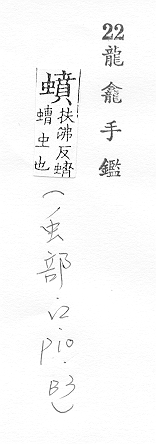 22龍龕手鑑
蟦扶沸反蠐
螬虫也
(虫部·上2·P10·B3)